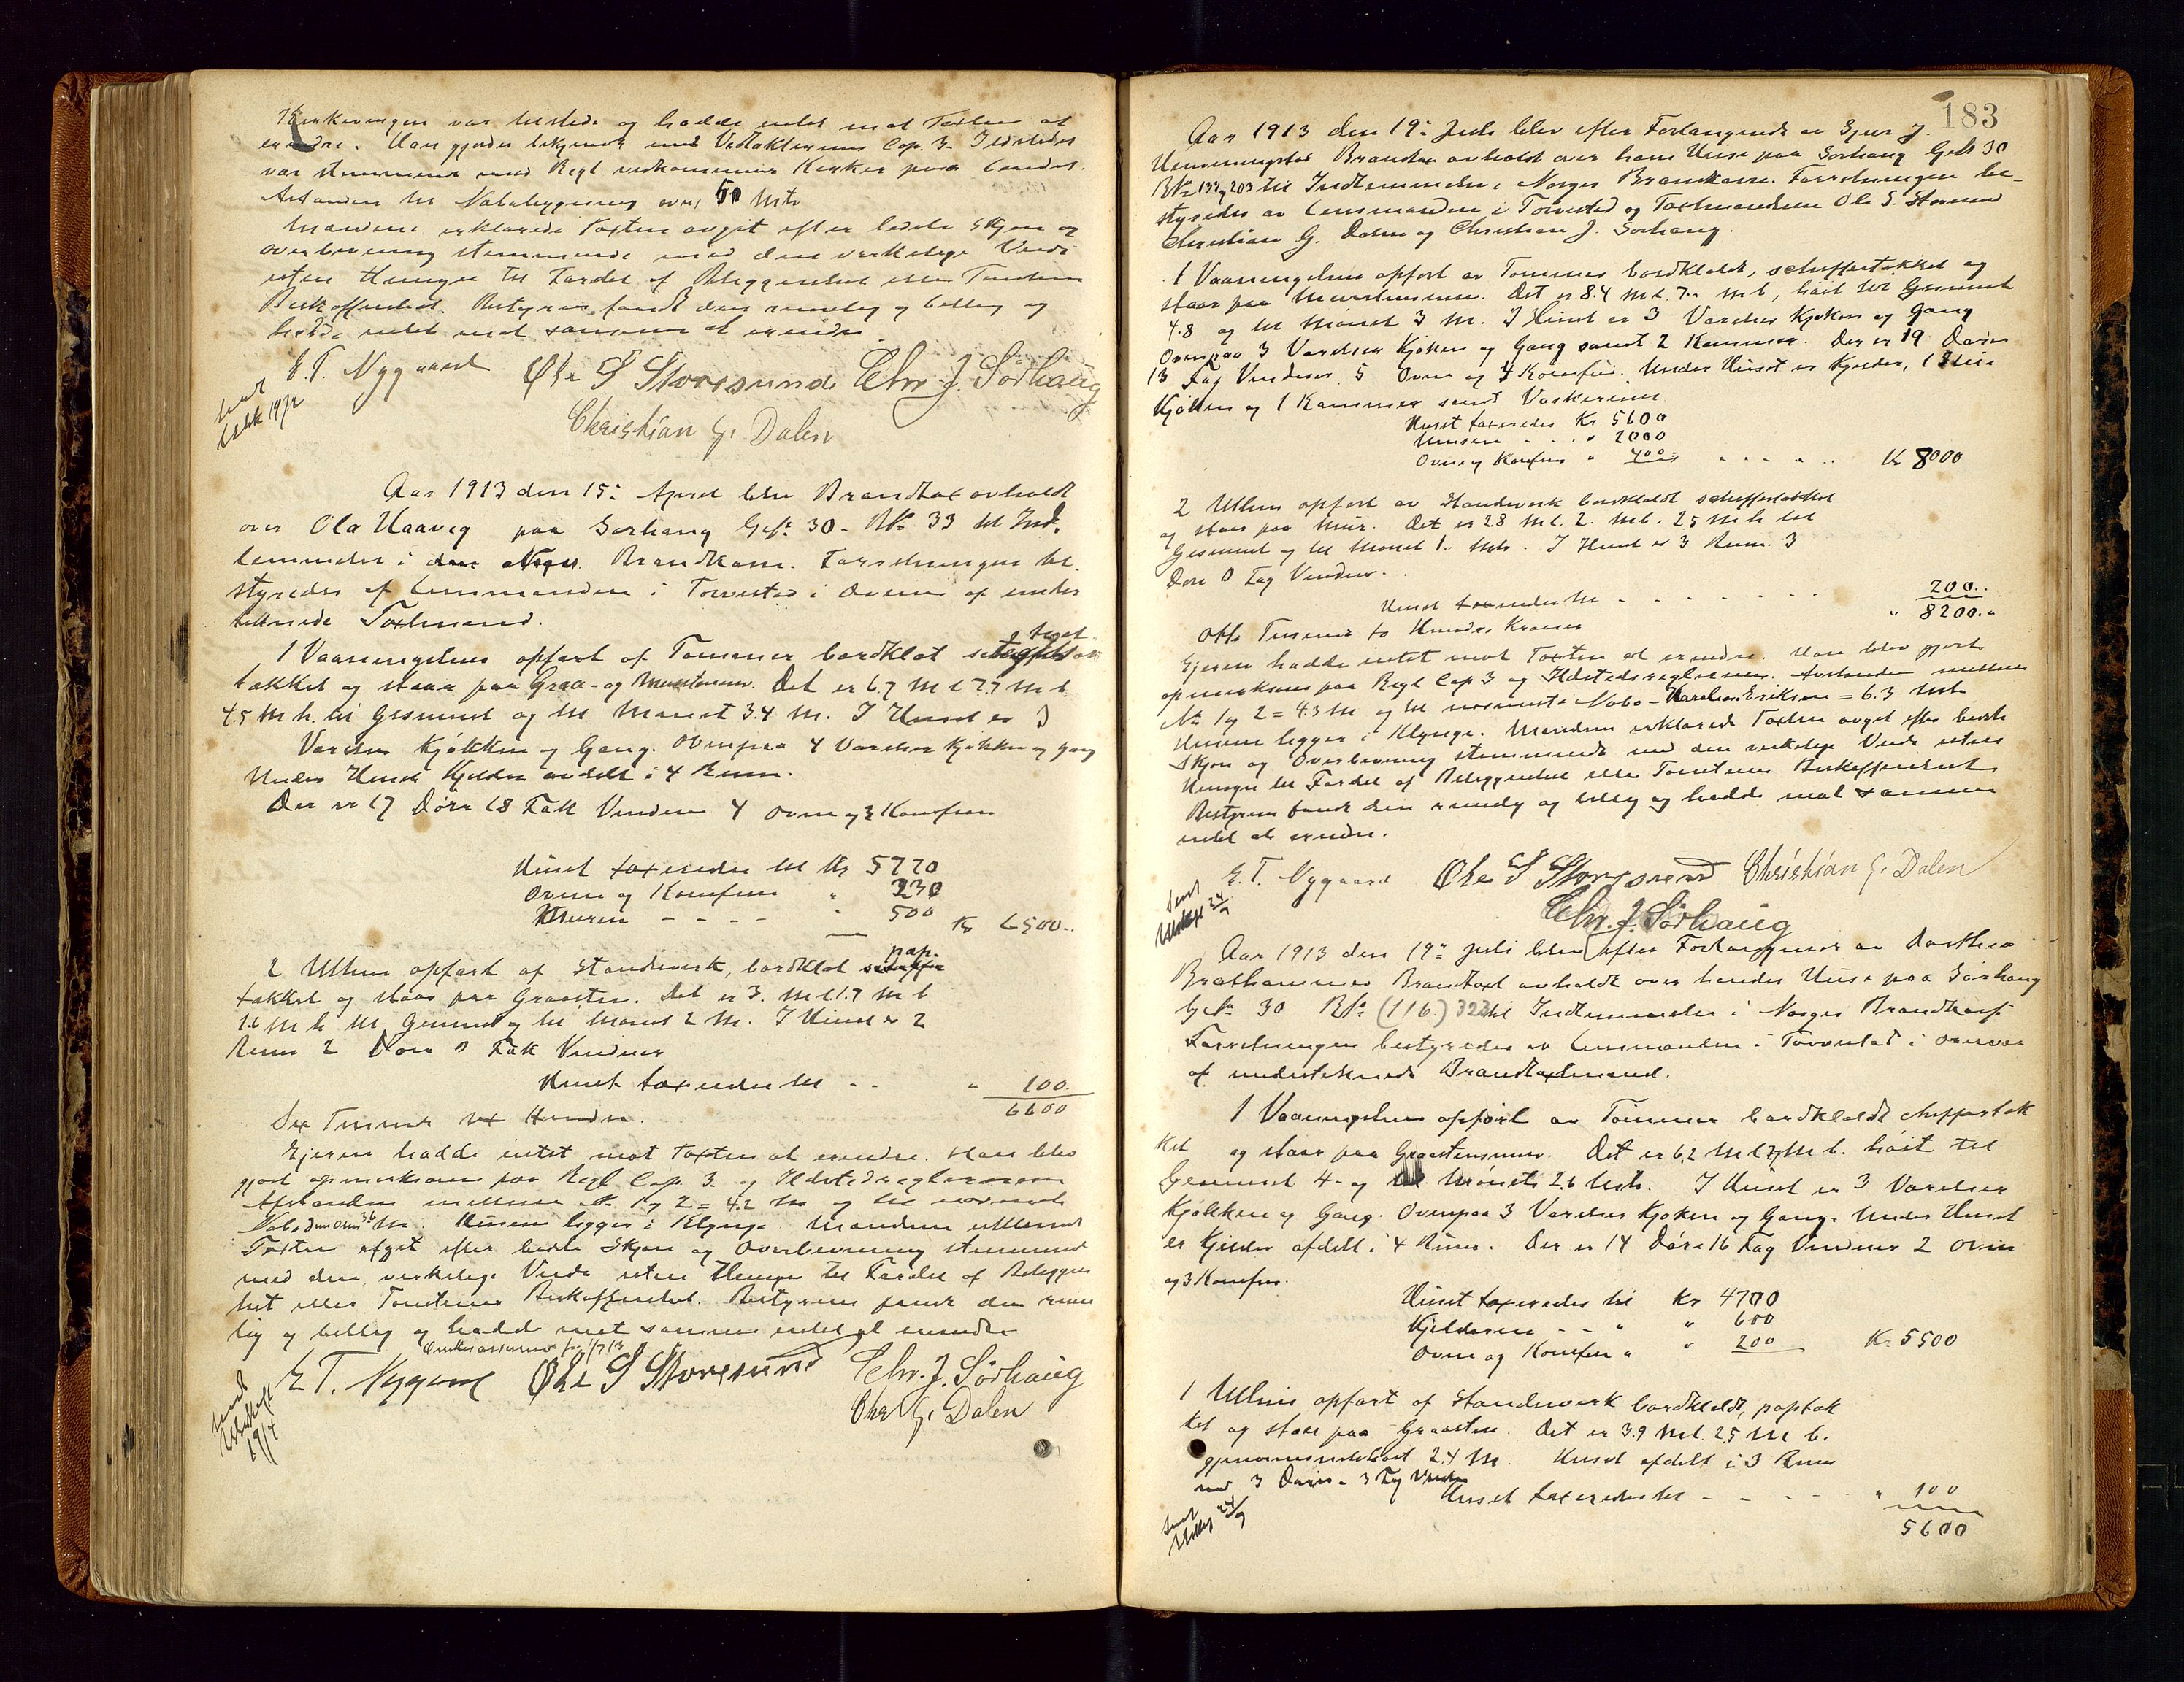 Kirkeværgen var tilstede og hadde intet mot Taxten at
erindre. Han gjordes bekjendt med Vedtækternes Cap. 3. Ildstedet
var stemmende med Regl vedkommende Kirker paa Landet.
Avstanden til Nabobygning over 50 Mtr
Mændene erklærede Taxten avgit efter bedste Skjøn og
overbevisning stemmende med den verkelige Værdi
uten Hensyn til Fordel af Beliggenhet eller Tomtens
Beskaffenhed. Bestyren fandt den rimelig og billig og
hadde intet mot samme at erindre
E. T. Nygaard Ole S Storesund Chr. J. Sørhaug
Christian G. Dalen
Aar 1913 den 15: April blev Brandtaxt avholdt
over Ola Haaveg paa Sørhaug G.No 30 - BNo 33 til Ind-
lemmelse i Norges Brandkasse. Forretningen be-
styredes af Lensmanden i Torvestad i Overvær af under
tegnede Taxtmænd.
1 Vaaningshus opført af Tømmer bordklæt teget
tækket og staar paa Graa- og Murstensmur. Det er 6.7 M l 7.7 M b.
4.5 M h. til Gesimset og til Mønet 3.4 M. I Huset er 3
Værelser Kjøkken og Gang. Ovenpaa 4 Værelser Kjøkken og gang
Under Huset Kjelder avdelt i 4 Rum.
Der er 17 Døre 18 Fak Vinduer 4 ovne og 3 Komfur
Huset taxeredes til Kr 5770
Ovne og Komfurer " 230
Muren - - - - " 500 Kr 6500..
pap-
2 Uthus opført af Standverk, bordklæt
tækket og staar paa Graasten. Det er 3. M l 1.7 M b
1.6 M h til Gesimset og til Mønet 2 M. I Huset er 2
Rum 2 Døre 0 Fak Vinduer
Huset taxeredes til - - " 100.
6600
Sex Tusinde sex Hundre.
Ejeren hadde intet mot Taxten at erindre. Han blev
gjort opmerksom paa Regl Cap. 3 og Ildstedreglerne
Afstanden mellem No 1 og 2 = 4.2 M og til nærmeste
Nabo 3.6 M. Husene ligger i Klynge Mændene erklærede
Taxten afgit efter bedste Skjøn og Overbevisning stemmende
med den verkelige Værdi uten Hensyn til Fordel af Beliggen
het eller Tomtens Beskaffenhet. Bestyren fandt den rime
lig og billig og hadde mot samme intet at erindre
E T. Nygaard Ole S Storesund Chr. J. Sørhaug
Chr G. Dalen
183
Aar 1913 den 19: Juli blev efter Forlangende av Sjur J.
Brandtaxt avholdt over hans Huse paa Sørhaug G.No 30
BNo 132 og 203 til Indlemmelse i Norges Brandkasse. Forretningen be-
styredes av Lensmanden i Torvestad og Taxtmændene Ole S. Storesund
Christian G. Dalen og Christian J. Sørhaug.
1 Vaaningshus opført av Tømmer bordklædt, schiffertækket og
staar paa Murstensmur. Det er 8.4 M l. 7.. M b, høit til Gesimset
4.8 og til Mønet 3 M. I Huset er 3 Værelser Kjøkken og Gang
Ovenpaa 3 Værelser Kjøkken og Gang samt 2 Kammer. Der er 19 Døre
13 Fag Vinduer 5 Ovne og 4 Komfur. Under Huset er Kjelder, 1 Stue
Kjøkken og 1 Kammer samt Vaskerum
Huset taxeredes Kr 5600
Muren - - - " 2000
Ovne og Komfur " 400 " " " " Kr 8000
2 Uthus opført av Standverk bordklædt schiffertækket
og staar paa Mur. Det er 2.8 M l. 2. M b. 2.5 M h til
Gesimset og til Mønet 1. Mtr. I Huset er 3 Rum. 3
Døre 0 Fag Vinduer.
Huset taxeredes til - - - - - - 200..
" 8200."
Otte Tusinde to Hundre Kroner
Ejeren hadde intet mot Taxten at erindre. Han blev gjort
opmerksom paa Regl Cap 3 og Ildstedsreglerne. Avstanden mellem
No 1 og 2 = 4.3 M og til nærmeste Nabo - Eriksen = 6.3 Mtr
Husene ligger i Klynge. Mændene erklærede Taxten avgit efter bedste
Skjøn og Overbevisning stemmende med den verkelige Værdi uten
Hensyn til Fordel af Beliggenhet eller Tomtens Beskaffenhet
Bestyren fandt den rimelig og billig og hadde mot samme
intet at erindre.
E. T. Nygaard Ole S Storesund Christian G. Dalen
Chr. J. Sørhaug
Aar 1913 den 19: Juli blev efter Forlangende av Dorthea
Brathammer Brandtaxt avholdt over hendes Huse paa Sørhaug
G.No 30 BNo (116.) 323 til Indlemmelse i Norges Brandkasse
Forretningen bestyredes av Lensmanden i Torvestad i overvær
af undertegnede Brandtaxtmænd.
1 Vaaningshus opført av Tømmer bordklædt chiffertæk
ket og staar paa Graastensmur. Det er 6.2 M l 7.7 M b. høit til
Gesimset 4- og til Mønet 2.6 Mtr. I Huset er 3 Værelser
Kjøkken og Gang. Ovenpaa 3 Værelser Kjøken og Gang. Under Huset
er Kjelder afdelt i 4 Rum. Der er 14 Døre 16 Fag Vinduer 2 Ovne
og 3 Komfur.
Huset taxeredes til Kr 4700
Kjelderen - - " " 600
Ovne og Komfur " " 200 Kr 5500
1 Uthus opført af Standverk bordklædt, paptæk
ket og staar paa Graasten. Det er 3.9 M l. 2.5 M b.
gjennemsnitshøit 2.4 M. Huset afdelt i 3 Rum
med 3 Døre - 3 Fag Vinduer
Huset taxeredes til - - - - " 100
5600